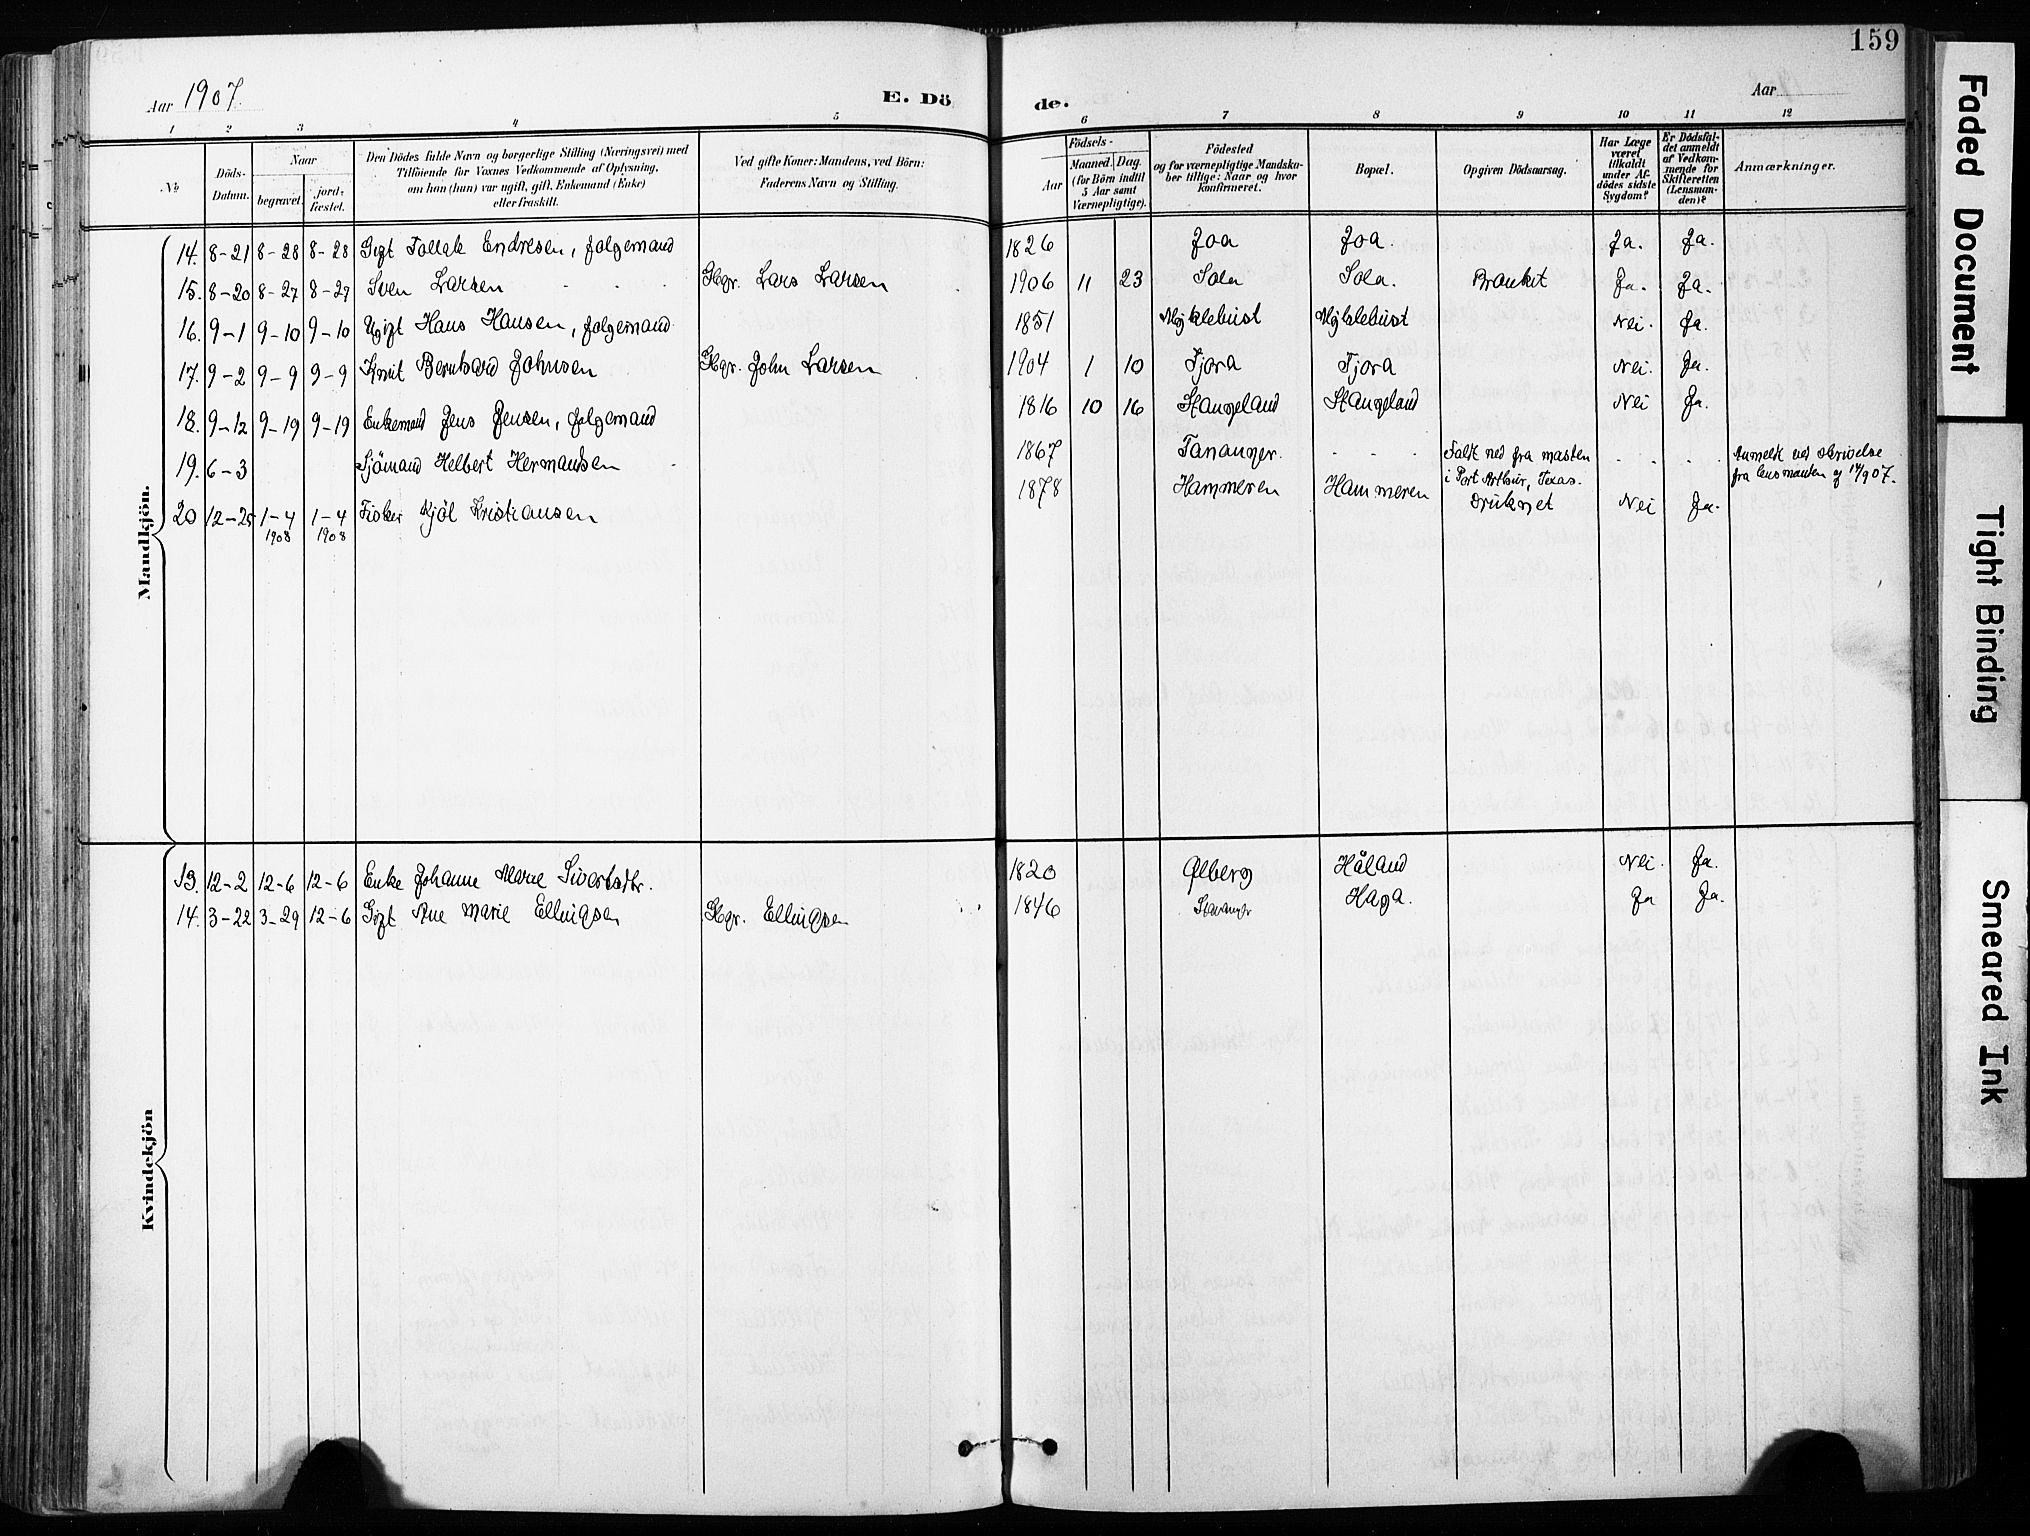 159
Aar 1907.
E. Dö
de.
Aar
1 2 3 4 5 6 7 8 9 10 11 12
No
Döds-
Datum.
Naar
begravet.
jord-
fæstet.
Den Dödes fulde Navn og borgerlige Stilling (Næringsvei) med
Tilföiende for Voxnes Vedkommende af Oplysning,
om han (hun) var ugift, gift, Enkemand (Enke)
eller fraskilt.
Ved gifte Koner: Mandens, ved Börn:
Faderens Navn og Stilling.
Födsels-
Aar
Maaned. Dag.
(for Börn indtil
5 Aar samt
Værnepligtige).
Födested
og for værnepligtige Mandska-
ber tillige: Naar og hvor
konfirmeret.
Bopæl.
Opgiven Dödsaarsag.
Har Læge
været
tilkaldt
under Af-
dödes sidste
Sygdom?
Er Dödsfal-
det anmeldt
af Vedkom-
mende for
Skifteretten
(Lensman-
den)?
Anmærkninger.
Mandkjön.
14. 8-21 8-28 8-28 Gift Tollak Endresen, folgemand 1826 Joa Joa. Ja. Ja.
15. 8-20 8-27 8-27 Sven Larsen Gbgr. Lars Larsen 1906 11 23 Sola Sola. Bronkit Ja. Ja.
16. 9-1 9-10 9-10 Ugift Hans Hansen, folgemand 1851 Myklebust Myklebust Nei. Ja.
17. 9-2 9-9 9-9 Knut Bernhard Johnsen Gbgr. John Larsen 1904 1 10 Tjora Tjora Nei. Ja.
18. 9-12 9-19 9-19 Enkemand Jens Jensen, folgemand 1816 10 16 Stangeland Stangeland Nei Ja.
19. 6-3 Sjömand Helbert Hermansen 1867 Tananger. - - - Faldt ned fra masten
i Port Arthur, Texas. - - - - Anmeldt ved skrivelse
fra lensmanden af 14/907.
20 12-25 1-4 1-4 Fisker Kjöl Kristiansen 1878 Hammeren Hammeren Druknet Nei Ja.
1908 1908
Kvindekjön
13. 12-2 12-6 12-6 Enke Johanne Marie Sivertsdtr. 1820 Ølberg Håland Nei. Ja.
14. 3-22 3-29 12-6 Gift Ane Marie Ellingsen Gbgr. Ellingsen 1846 Stavanger Haga. Ja Ja.
Faded Document
Tight Binding
Smeared Ink